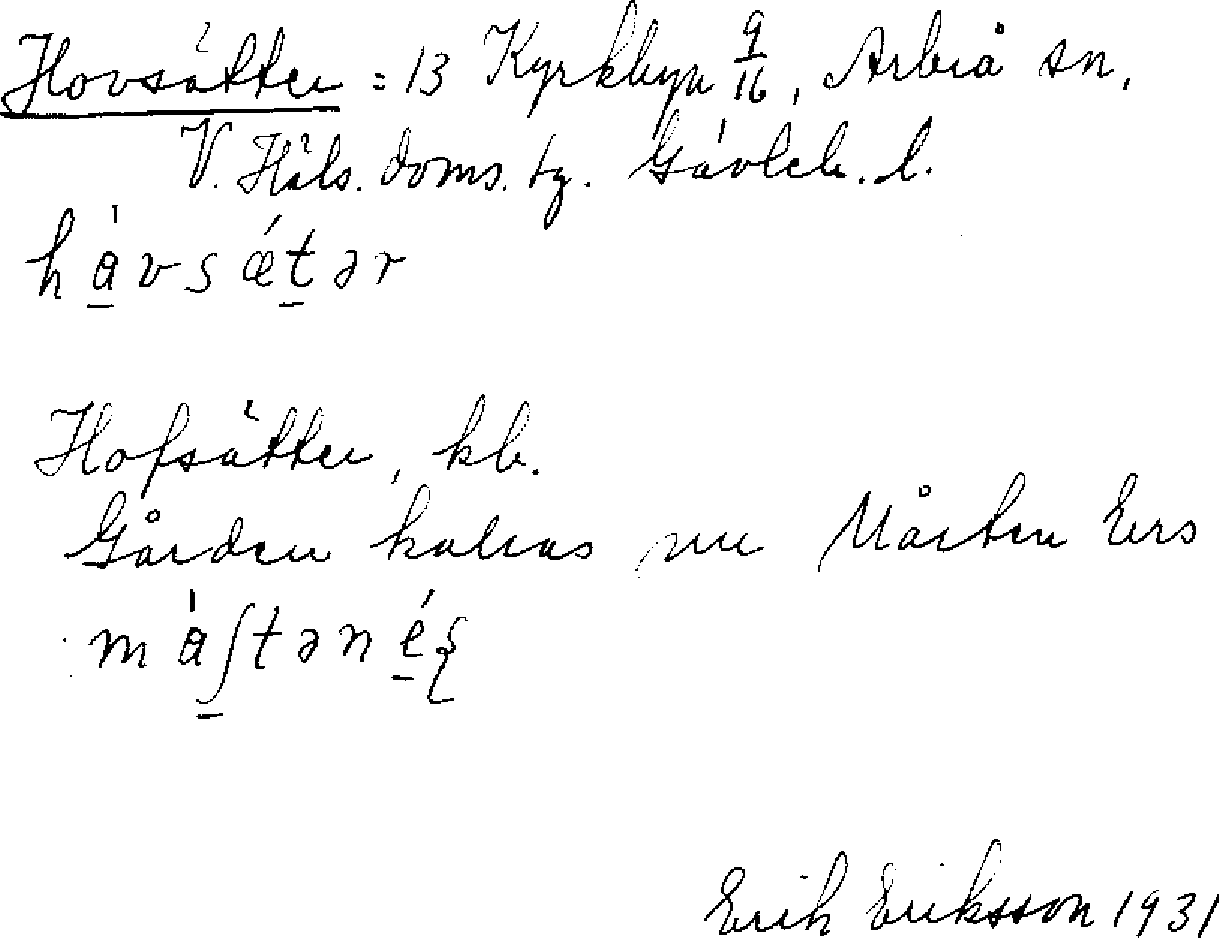 Hovsätter = 13 Kyrkbyn 9/16, Arbrå sn,
V. Häls. doms. tg. Gävleb. l.
håvsǽtər
Hofsätter, kb.
Gården kallas nu Mårten Ers
måʃtəné
Erik Eriksson 1931